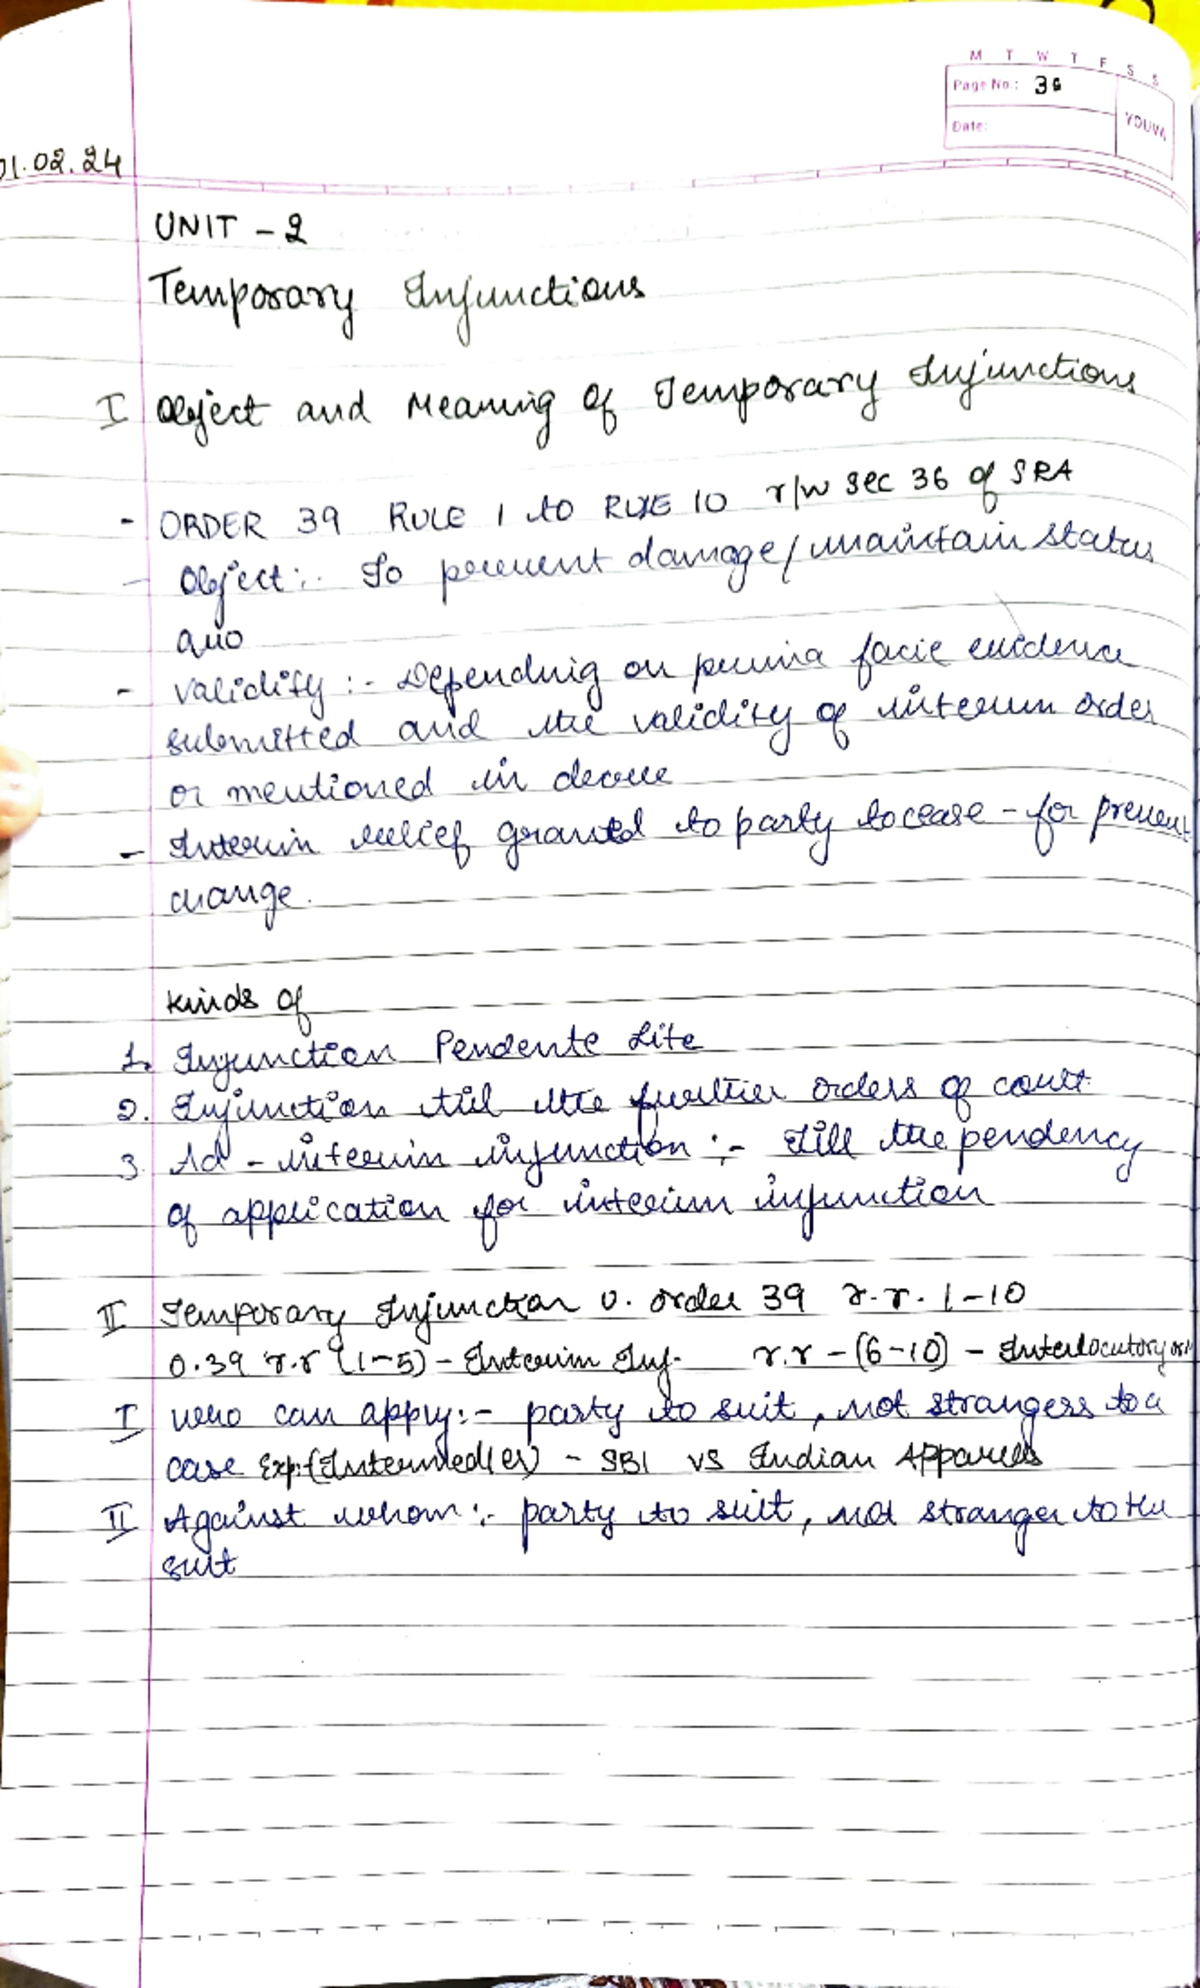 M T W T F S S
Page No.: 36
Date:
YOUVA
01.02.24
UNIT - 2
Temporary Injunctions
I Object and Meaning of Temporary Injunctions
- ORDER 39 RULE 1 to RULE 10 r/w Sec 36 of SRA
- Object:- To prevent damage/maintain status
quo
- Validity :- Depending on prima facie evidence
submitted and the validity of interim order
or mentioned in decree
- Interim relief granted to party to cease - for prevent
change.
Kinds of
1. Injunction Pendente Lite
2. Injunction till the further orders of court
3. Ad - interim injunction :- till the pendency
of application for interim injunction
II Temporary Injunction U. order 39 r.r. 1-10
O.39 r.r (1-5) - Interim Inj. r.r - (6-10) - Interlocutory
I who can apply:- party to suit, not strangers to a
case Exp: - SBI vs Indian
II Against whom:- party to suit, not stranger to the
suit